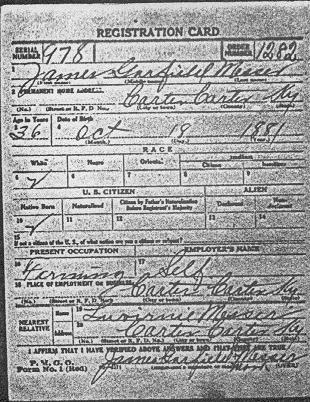 REGISTRATION CARD
SERIAL NUMBER 978 ORDER NUMBER 1282
1 James Garfield Messer
(First name) (Middle name) (Last name)
2 PERMANENT HOME ADDRESS:
Carter Carter Ky
(No.) (Street or R. F. D. No.) (City or town) (County) (State)
Age in Years Date of Birth
3 36 4 Oct 19 1881
(Month.) (Day.) (Year.)
RACE
White Negro Oriental Indian
Citizen Noncitizen
5 ✓ 6 7 8 9
U. S. CITIZEN ALIEN
Native Born Naturalized Citizen by Father's Naturalization Before Registrant's Majority Declarant Non-declarant
10 ✓ 11 12 13 14
15 If not a citizen of the U. S., of what nation are you a citizen or subject?
PRESENT OCCUPATION EMPLOYER'S NAME
16 Farming 17 Self
18 PLACE OF EMPLOYMENT OR BUSINESS:
Carter Carter Ky
(No.) (Street or R. F. D. No.) (City or town) (County) (State)
NEAREST RELATIVE Name 19 Messer
Address 20 Carter Carter Ky
(No.) (Street or R. F. D. No.) (City or town) (County) (State)
I AFFIRM THAT I HAVE VERIFIED ABOVE ANSWERS AND THAT THEY ARE TRUE
P. M. G. O.
Form No. 1 (Red) James Garfield Messer
(Registrant's signature or mark) (OVER)